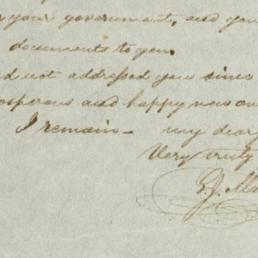 your government, and you
documents to you.
not addressed you since
prosperous and happy now
I remain - my dear
Very truly